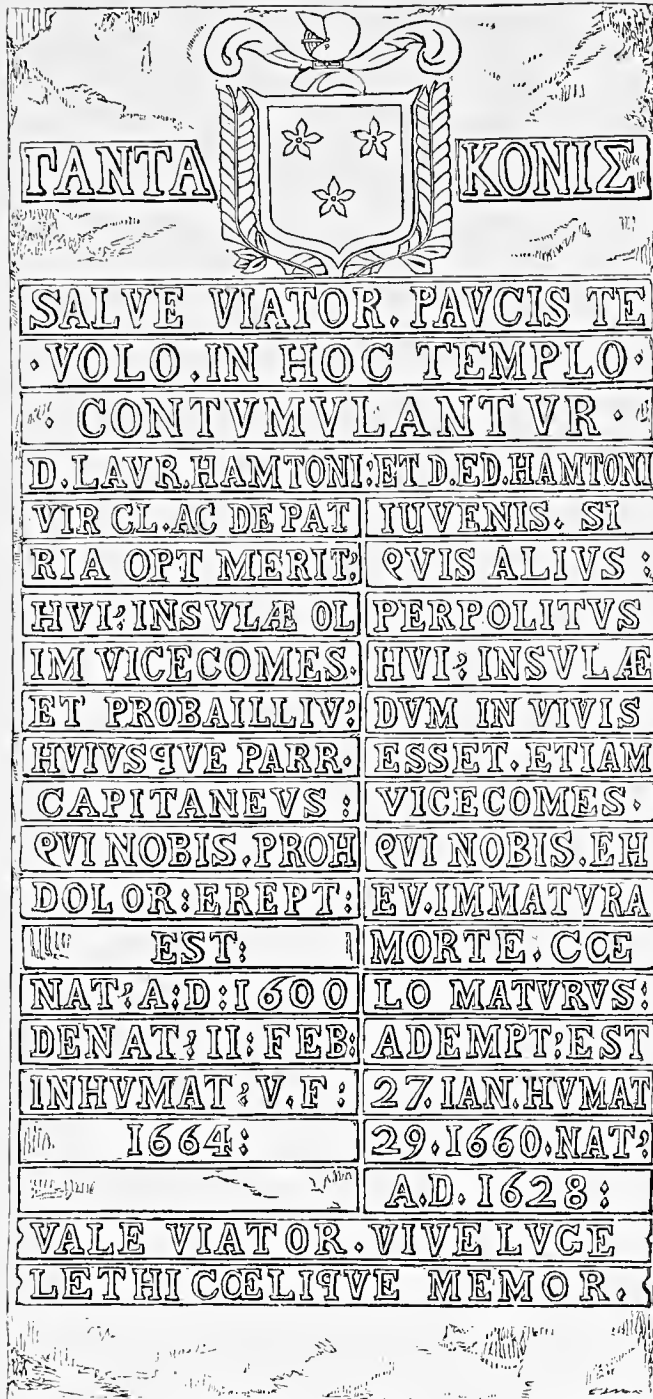 ΓΑΝΤΑ ΚΟΝΙΣ
SALVE VIATOR. PAVCIS TE
·VOLO.IN HOC TEMPLO·
· CONTVMVLANTVR ·
D.LAVR.HAMTONI:ET D.ED.HAMTONI
VIR CL.AC DE PAT
RIA OPT MERIT:
HVI: INSVLÆ OL
IM VICECOMES.
ET PROBAILLIV:
HVIVSQVE PARR.
CAPITANEVS :
QVI NOBIS.PROH
DOLOR:EREPT:
EST:
NAT:A:D:1600
DENAT: II: FEB:
INHVMAT: V.F:
1664:
IUVENIS. SI
QVIS ALIVS :
PERPOLITVS
HVI: INSVLÆ
DVM IN VIVIS
ESSET.ETIAM
VICECOMES.
QVI NOBIS.EH
EV.IMMATVRA
MORTE.CŒ
LO MATVRVS:
ADEMPT:EST
27.IAN.HVMAT
29.1660.NAT:
A.D.1628:
VALE VIATOR.VIVE LVCE
LETHI CŒLIQVE MEMOR.